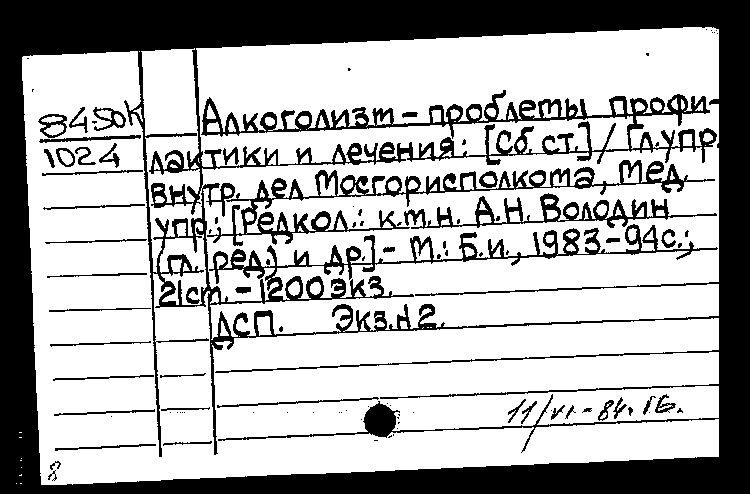 84-50К
1024
Алкоголизм - проблемы профи-
лактики и лечения: [Сб. ст.] / Гл. упр.
внутр. дел Мосгорисполкома, Мед.
упр.; [Редкол.: к.м.н. А.Н. Володин
(гл. ред.) и др.]. - М.: Б.и., 1983. - 94с.;
21см. - 1200 экз.
ДСП. Экз.N2.
11/VI - 84.
8